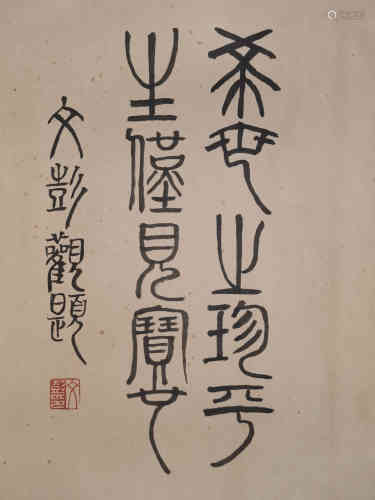 希世之珍平
生僅見寶也
文彭觀題